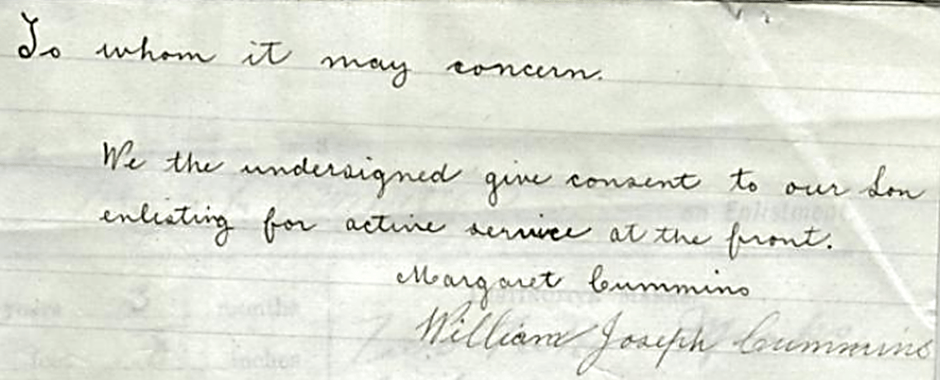 To whom it may concern.
We the undersigned give consent to our Son
enlisting for active service at the front.
Margaret Cummins
William Joseph Cummins
on Enlistment
years 3 months
feet inches